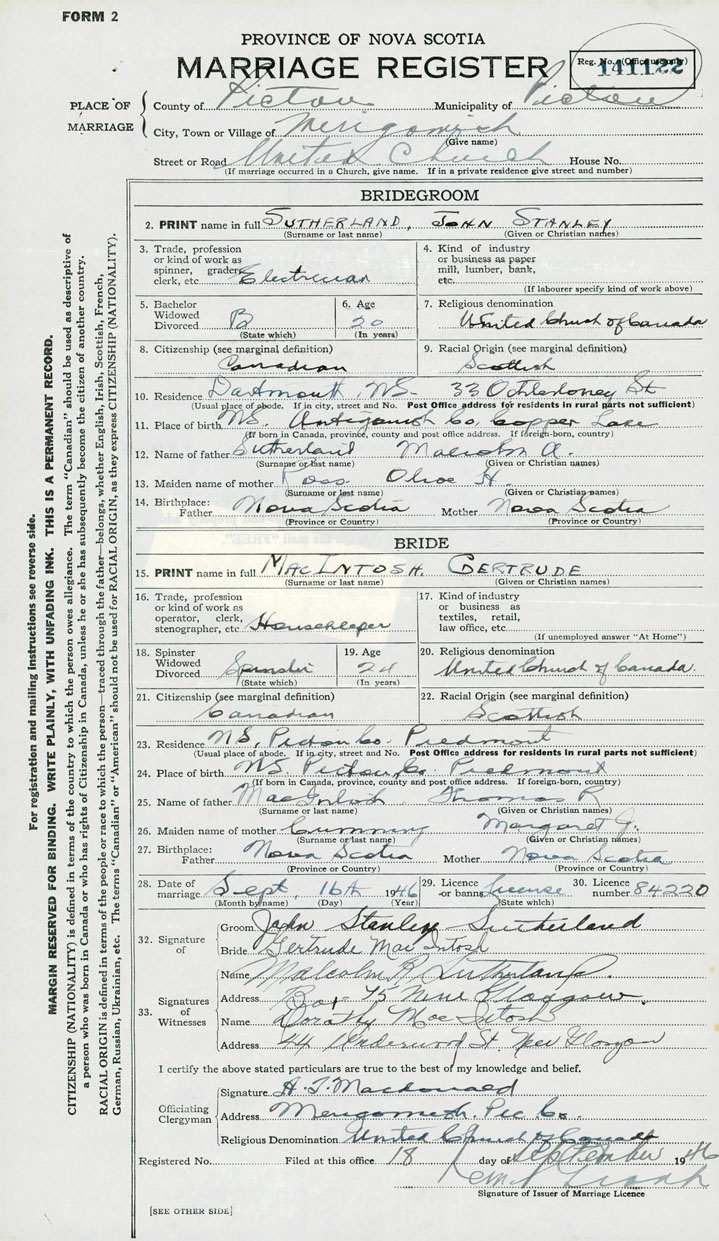 FORM 2
PROVINCE OF NOVA SCOTIA
MARRIAGE REGISTER
Reg. No. (Office use only)
141122
PLACE OF MARRIAGE
County of Pictou Municipality of Pictou
City, Town or Village of Merigomish
(Give name)
Street or Road United Church House No.
(If marriage occurred in a Church, give name. If in a private residence give street and number)
BRIDEGROOM
2. PRINT name in full SUTHERLAND, JOHN STANLEY
(Surname or last name) (Given or Christian names)
3. Trade, profession or kind of work as spinner, grader, clerk, etc. Electrician
4. Kind of industry or business as paper mill, lumber, bank, etc.
(If labourer specify kind of work above)
5. Bachelor Widowed Divorced B
(State which)
6. Age 20
(In years)
7. Religious denomination
United Church of Canada
8. Citizenship (see marginal definition)
Canadian
9. Racial Origin (see marginal definition)
Scottish
10. Residence Dartmouth, NS 33 Ochterloney St
(Usual place of abode. If in city, street and No. Post Office address for residents in rural parts not sufficient)
11. Place of birth NS. Antigonish Co, Copper Lake
(If born in Canada, province, county and post office address. If foreign-born, country)
12. Name of father Sutherland Malcolm A.
(Surname or last name) (Given or Christian names)
13. Maiden name of mother Ross Olive H.
(Surname or last name) (Given or Christian names)
14. Birthplace: Father Nova Scotia Mother Nova Scotia
(Province or Country) (Province or Country)
BRIDE
15. PRINT name in full MACINTOSH, GERTRUDE
(Surname or last name) (Given or Christian names)
16. Trade, profession or kind of work as operator, clerk, stenographer, etc Housekeeper
17. Kind of industry or business as textiles, retail, law office, etc.
(If unemployed answer "At Home")
18. Spinster Widowed Divorced Spinster
(State which)
19. Age 24
(In years)
20. Religious denomination
United Church of Canada.
21. Citizenship (see marginal definition)
Canadian
22. Racial Origin (see marginal definition)
Scottish
23. Residence NS, Pictou Co. Piedmont
(Usual place of abode. If in city, street and No. Post Office address for residents in rural parts not sufficient)
24. Place of birth NS Pictou Co Piedmont
(If born in Canada, province, county and post office address. If foreign-born, country)
25. Name of father MacIntosh Thomas R
(Surname or last name) (Given or Christian names)
26. Maiden name of mother Cumming Margaret J.
(Surname or last name) (Given or Christian names)
27. Birthplace: Father Nova Scotia Mother Nova Scotia
(Province or Country) (Province or Country)
28. Date of marriage Sept. 16th 1946
(Month by name) (Day) (Year)
29. Licence or banns License
(State which)
30. Licence number 84220
32. Signature of
Groom John Stanley Sutherland
Bride Gertrude MacIntosh
33. Signatures of Witnesses
Name Malcolm R Sutherland.
Address Box 75 New Glasgow.
Name Dorothy MacIntosh
Address 44 Underwood St. New Glasgow
I certify the above stated particulars are true to the best of my knowledge and belief.
Officiating Clergyman
Signature Macdonald
Address Merigomish Pic Co.
Religious Denomination United Church of Canada
Registered No. Filed at this office 18 day of September 1946
Signature of Issuer of Marriage Licence
[SEE OTHER SIDE]
For registration and mailing instructions see reverse side.
MARGIN RESERVED FOR BINDING. WRITE PLAINLY, WITH UNFADING INK. THIS IS A PERMANENT RECORD.
CITIZENSHIP (NATIONALITY) is defined in terms of the country to which the person owes allegiance. The term "Canadian" should be used as descriptive of
a person who was born in Canada or who has rights of Citizenship in Canada, unless he or she has subsequently become the citizen of another country.
RACIAL ORIGIN is defined in terms of the people or race to which the person—traced through the father—belongs, whether English, Irish, Scottish, French,
German, Russian, Ukrainian, etc. The terms "Canadian" or "American" should not be used for RACIAL ORIGIN, as they express CITIZENSHIP (NATIONALITY).